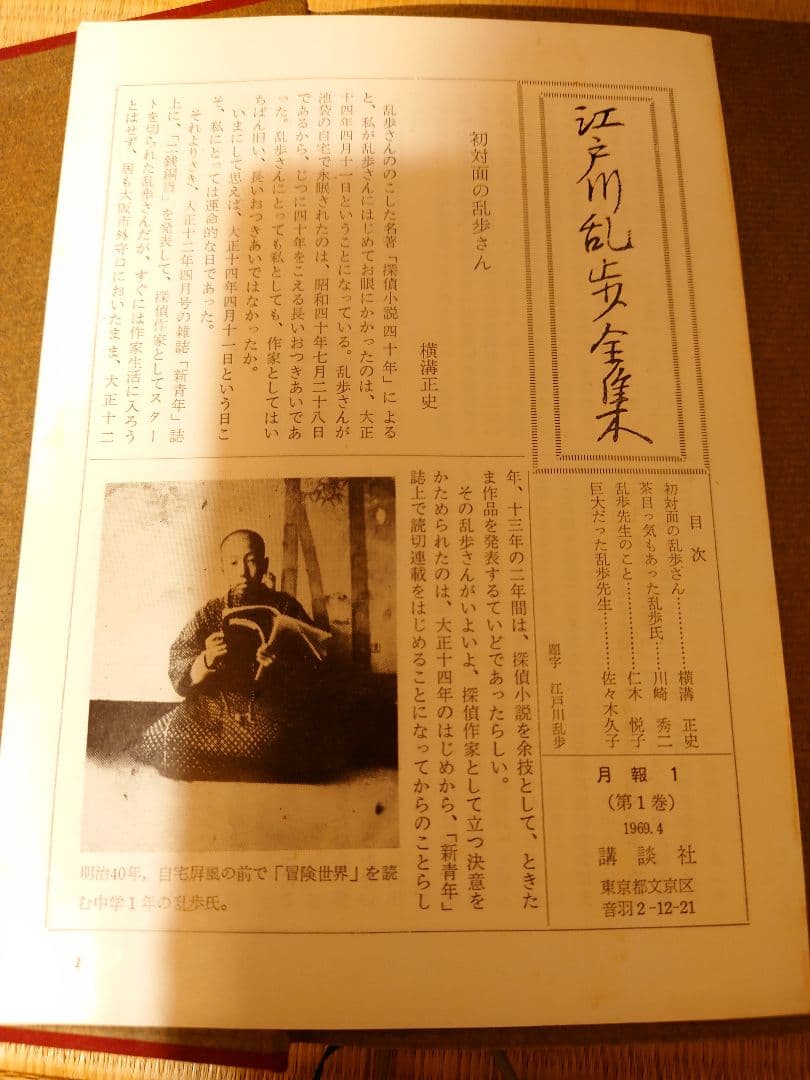 江戸川乱歩全集
目次
初対面の乱歩さん…………横溝正史
茶目っ気もあった乱歩氏…川崎秀二
乱歩先生のこと……………仁木悦子
巨大だった乱歩先生………佐々木久子
題字　江戸川乱歩
月報1
（第1巻）
1969.4
講談社
東京都文京区
音羽2-12-21
初対面の乱歩さん
横溝正史
乱歩さんののこした名著「探偵小説四十年」による
と、私が乱歩さんにはじめてお眼にかかったのは、大正
十四年四月十一日ということになっている。乱歩さんが
池袋の自宅で永眠されたのは、昭和四十年七月二十八日
であるから、じつに四十年をこえる長いおつきあいであ
った。乱歩さんにとっても私としても、作家としてはい
ちばん旧い、長いおつきあいではなかったか。
いまにして思えば、大正十四年四月十一日という日こ
そ、私にとっては運命的な日であった。
それよりさき、大正十二年四月号の雑誌「新青年」誌
上に、「二銭銅貨」を発表して、探偵作家としてスター
トを切られた乱歩さんだが、すぐには作家生活に入ろう
とはせず、居も大阪市外守口においたまま、大正十二
年、十三年の二年間は、探偵小説を余技として、ときた
ま作品を発表するていどであったらしい。
その乱歩さんがいよいよ、探偵作家として立つ決意を
かためられたのは、大正十四年のはじめから、「新青年」
誌上で読切連載をはじめることになってからのことらし
明治40年，自宅屏風の前で「冒険世界」を読
む中学1年の乱歩氏。
1